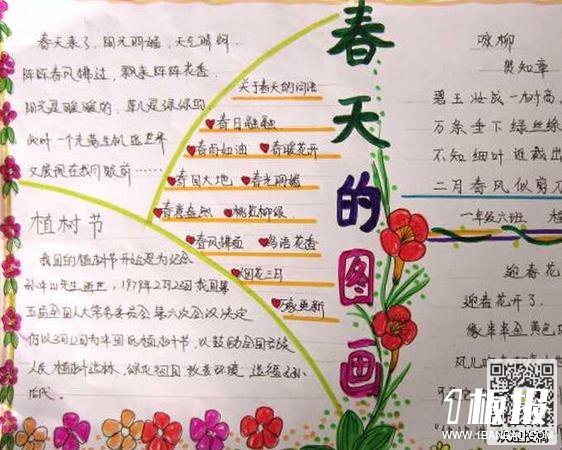 春天来了，阳光明媚，天气晴朗，
阵阵春风拂过，飘来阵阵花香，
阳光是暖暖的，草儿是绿绿的，
此时一个充满生机的世界
又展现在我们眼前……
植树节
我国的植树节开始是为纪念
孙中山先生逝世，1979年2月23日我国第
五届全国人大常务委员会第六次会议决定
仍以3月12日为中国的植树节，以鼓励全国各族
人民植树造林，绿化祖国改善环境，造福子孙
后代。
关于春天的词语
春日融融
春雨如油 春暖花开
春回大地 春光明媚
春意盎然 桃红柳绿
春风拂面 鸟语花香
烟花三月
万象更新
春天的图画
咏柳
贺知章
碧玉妆成一树高
万条垂下绿丝绦
不知细叶谁裁出
二月春风似剪刀
一年级六班
迎春花
迎春花开了
像串串金黄色
风儿
板报
WWW.1BANBAO.COM